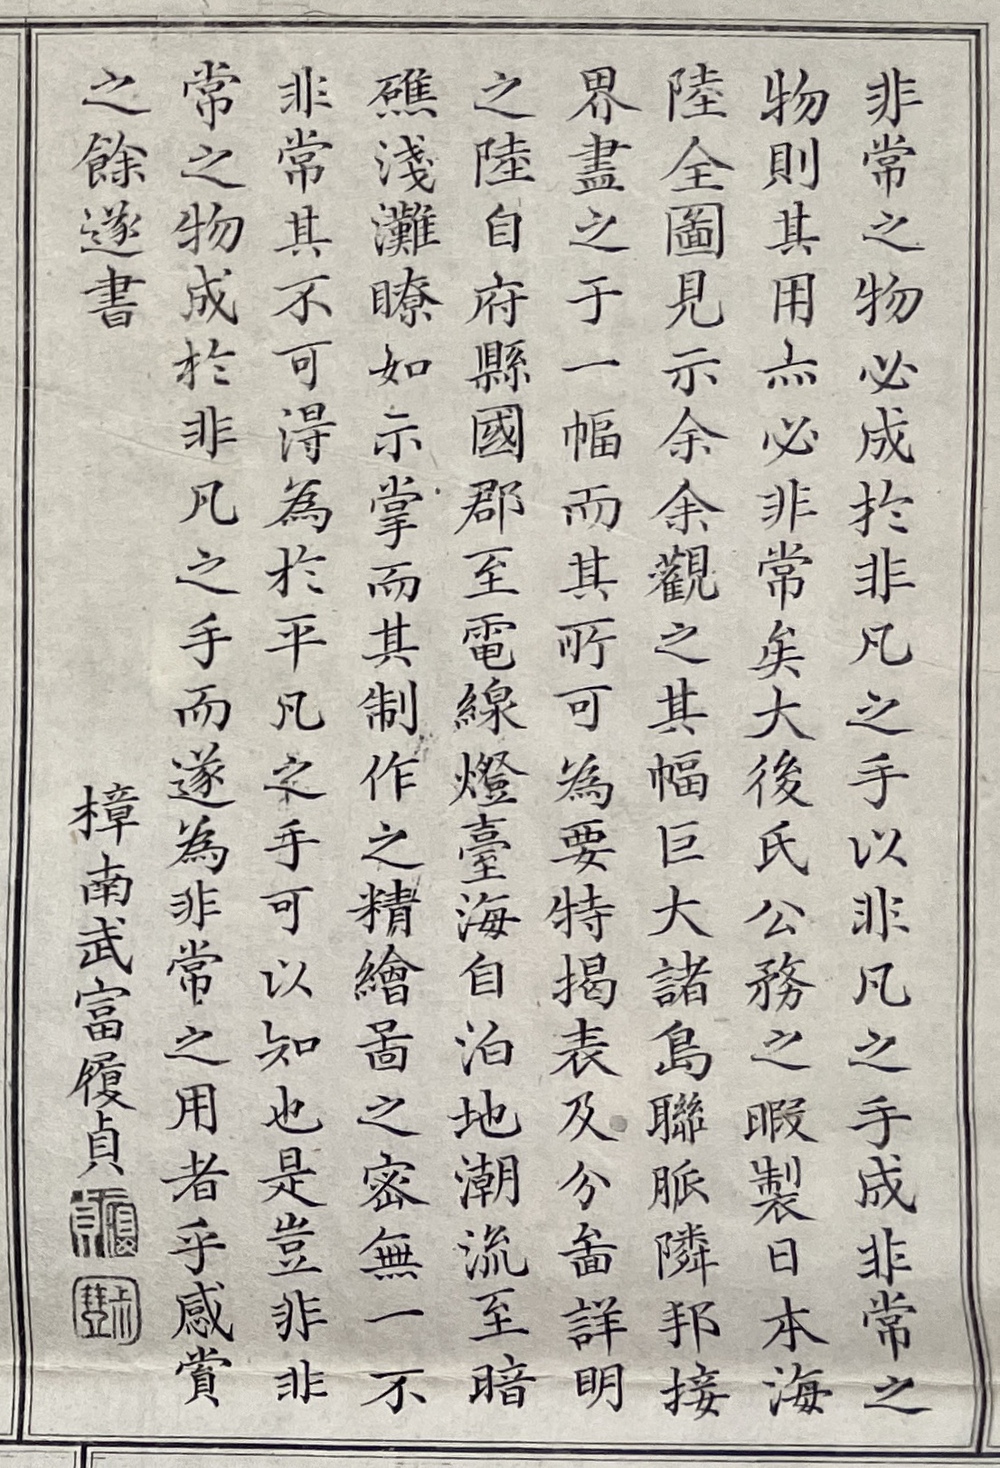 非常之物必成於非凡之手以非凡之手成非常之
物則其用亦必非常矣大後氏公務之暇製日本海
陸全圖見示余余觀之其幅巨大諸島聯脈隣邦接
界盡之于一幅而其所可為要特揭表及分啚詳明
之陸自府縣國郡至電線燈臺海自泊地潮流至暗
礁淺灘瞭如示掌而其制作之精繪啚之密無一不
非常其不可得為於平凡之手可以知也是豈非非
常之物成於非凡之手而遂為非常之用者乎感賞
之餘遂書
樟南武富履貞